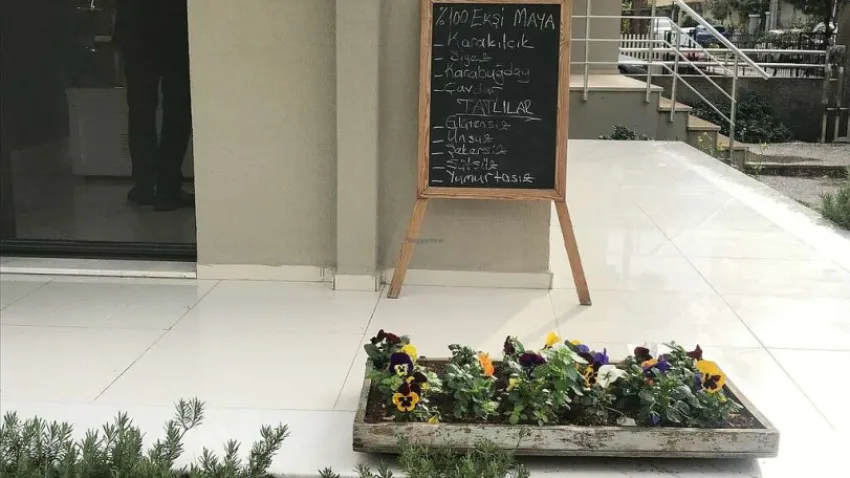 %100 EKŞİ MAYA
- Karakılçık
- Siyez
- Karabuğday
- Çavdar
TATLILAR
- Glutensiz
- Unsuz
- Şekersiz
- Sütsüz
- Yumurtasız